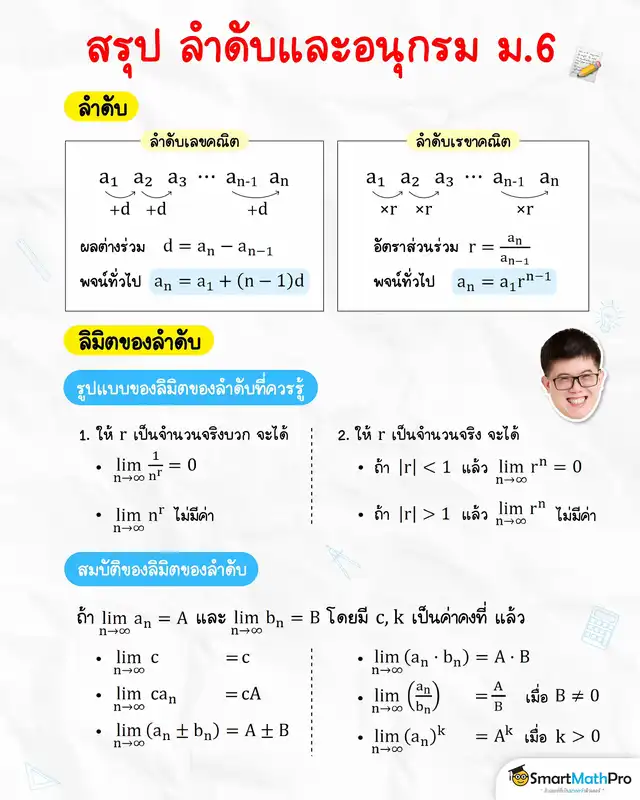 สรุป ลำดับและอนุกรม ม.6
ลำดับ
ลำดับเลขคณิต
a₁ a₂ a₃ ⋯ aₙ₋₁ aₙ
+d +d +d
ผลต่างร่วม d = aₙ − aₙ₋₁
พจน์ทั่วไป aₙ = a₁ + (n − 1)d
ลำดับเรขาคณิต
a₁ a₂ a₃ ⋯ aₙ₋₁ aₙ
×r ×r ×r
อัตราส่วนร่วม r = aₙ/aₙ₋₁
พจน์ทั่วไป aₙ = a₁rⁿ⁻¹
ลิมิตของลำดับ
รูปแบบของลิมิตของลำดับที่ควรรู้
1. ให้ r เป็นจำนวนจริงบวก จะได้
• lim n→∞ 1/nʳ = 0
• lim n→∞ nʳ ไม่มีค่า
2. ให้ r เป็นจำนวนจริง จะได้
• ถ้า |r| < 1 แล้ว lim n→∞ rⁿ = 0
• ถ้า |r| > 1 แล้ว lim n→∞ rⁿ ไม่มีค่า
สมบัติของลิมิตของลำดับ
ถ้า lim n→∞ aₙ = A และ lim n→∞ bₙ = B โดยมี c, k เป็นค่าคงที่ แล้ว
• lim n→∞ c = c
• lim n→∞ caₙ = cA
• lim n→∞ (aₙ ± bₙ) = A ± B
• lim n→∞ (aₙ · bₙ) = A · B
• lim n→∞ (aₙ/bₙ) = A/B เมื่อ B ≠ 0
• lim n→∞ (aₙ)ᵏ = Aᵏ เมื่อ k > 0
SmartMathPro